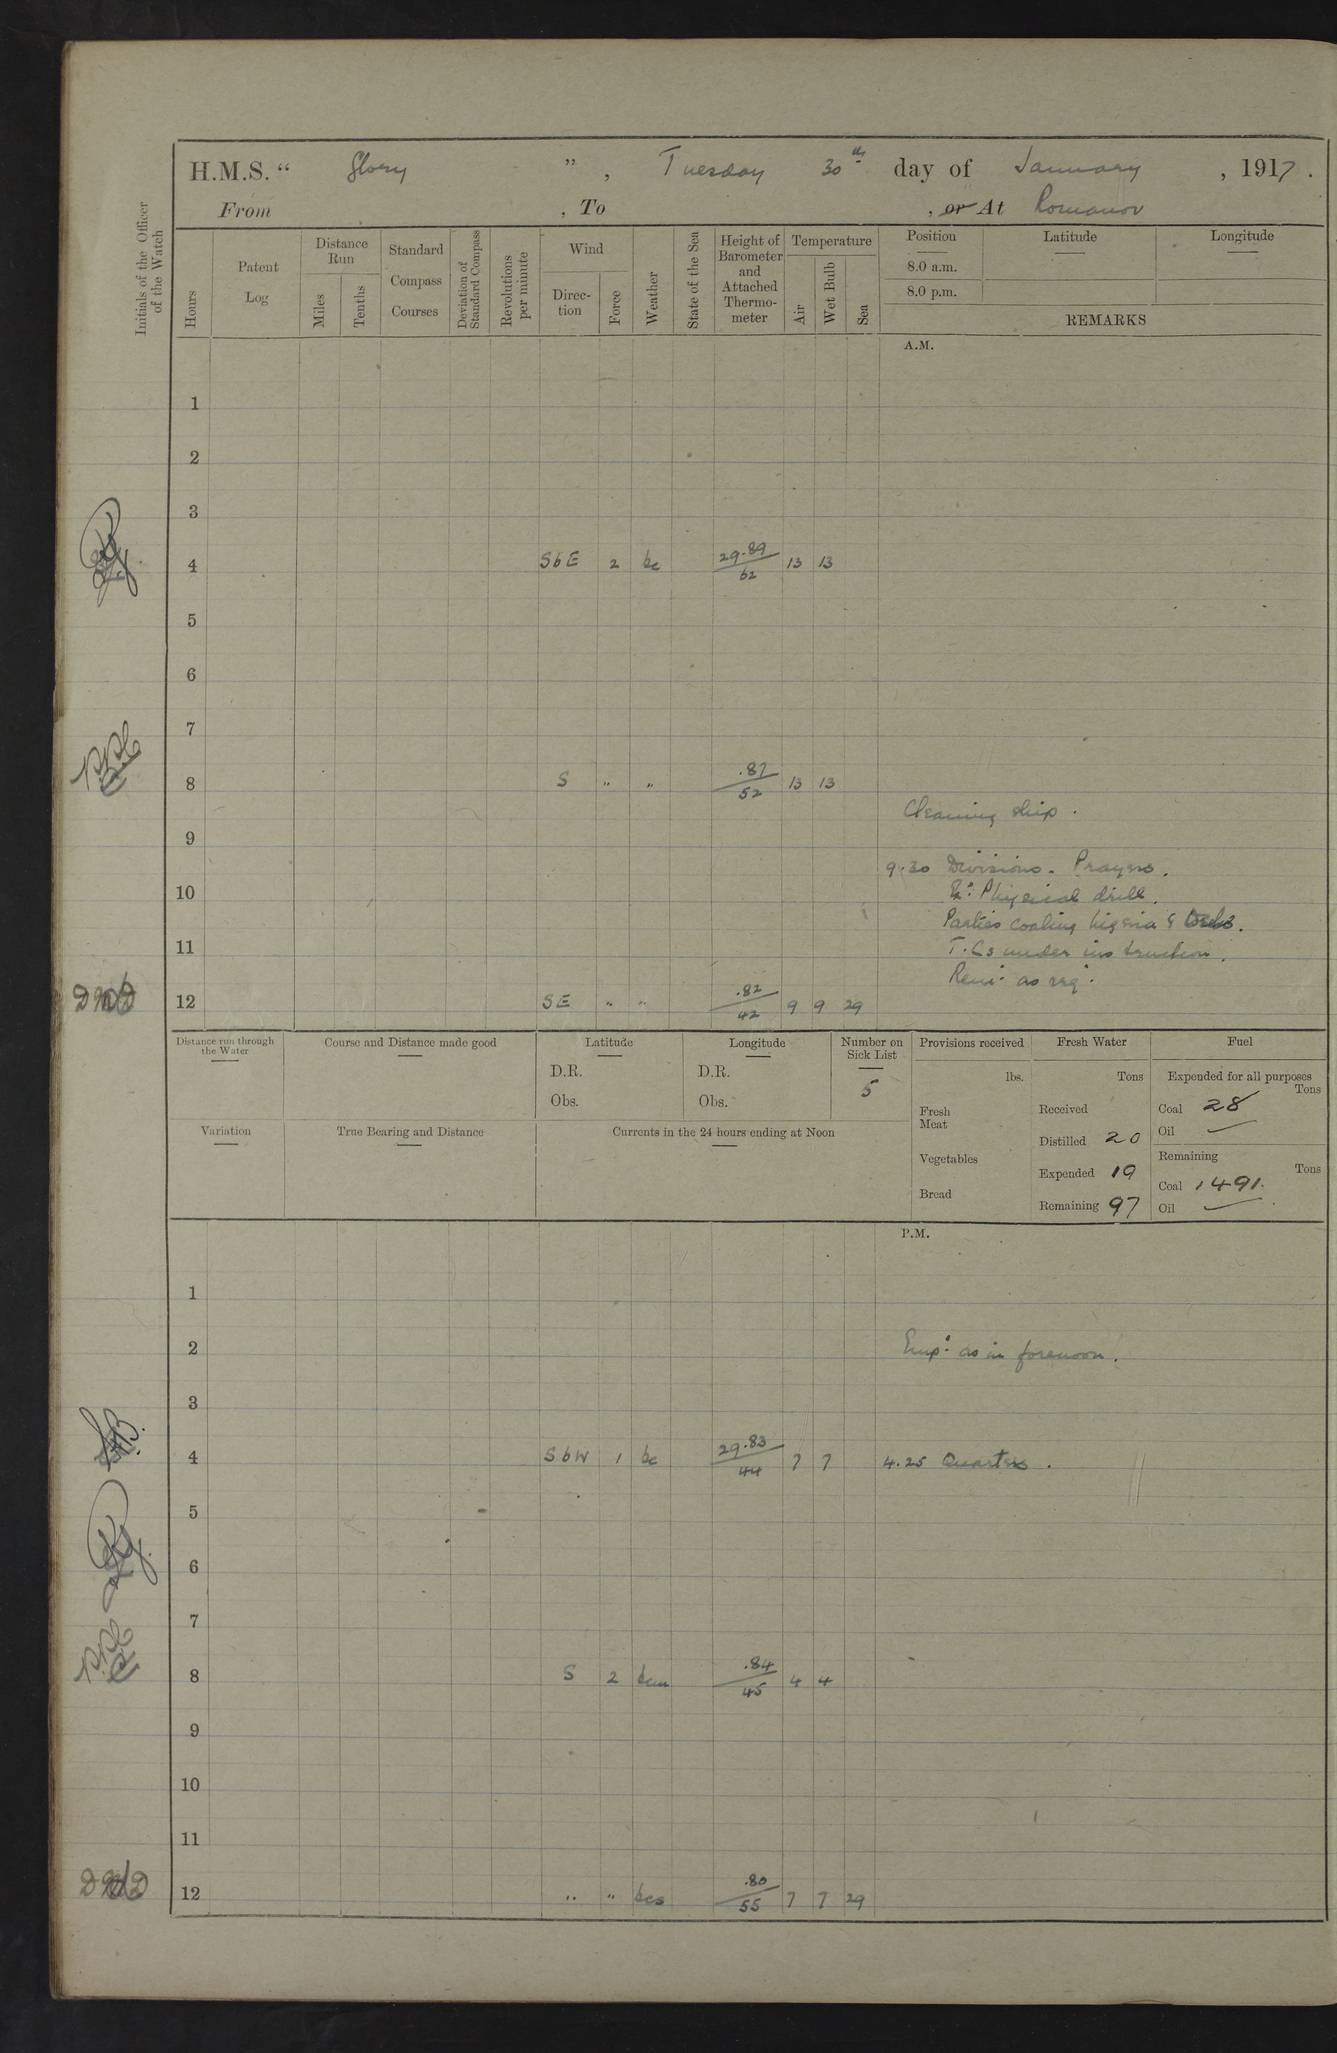 H.M.S. “ Glory ”, Tuesday 30th day of January, 1917.
From , To , or At Romanov
Initials of the Officer of the Watch
Hours
Patent Log
Distance Run
Miles
Tenths
Standard Compass Courses
Deviation of Standard Compass
Revolutions per minute
Wind
Direc-tion
Force
Weather
State of the Sea
Height of Barometer and Attached Thermo-meter
Temperature
Air
Wet Bulb
Sea
Position
Latitude
Longitude
8.0 a.m.
8.0 p.m.
REMARKS
A.M.
1
2
3
4 SbE 2 bc 29.89/62 13 13
5
6
7
8 S " " .87/52 13 13
Cleaning ship.
9
9.30 Divisions. Prayers.
10
Ex: Physical drill.
Parties coaling Nigeria &
11
T.Cs under instruction.
Rem: as req:
12 SE " " .82/42 9 9 29
Distance run through the Water
Course and Distance made good
Latitude
D.R.
Obs.
Longitude
D.R.
Obs.
Number on Sick List
5
Provisions received
lbs.
Fresh Meat
Vegetables
Bread
Fresh Water
Tons
Received
Distilled 20
Expended 19
Remaining 97
Fuel
Expended for all purposes
Tons
Coal 28
Oil —
Remaining
Tons
Coal 1491.
Oil —
Variation
True Bearing and Distance
Currents in the 24 hours ending at Noon
P.M.
1
2
Emp: as in forenoon.
3
4 SbW 1 bc 29.83/44 7 7 4.25 Quarters.
5
6
7
8 S 2 bcm .84/45 4 4
9
10
11
12 " " bcs .80/55 7 7 29